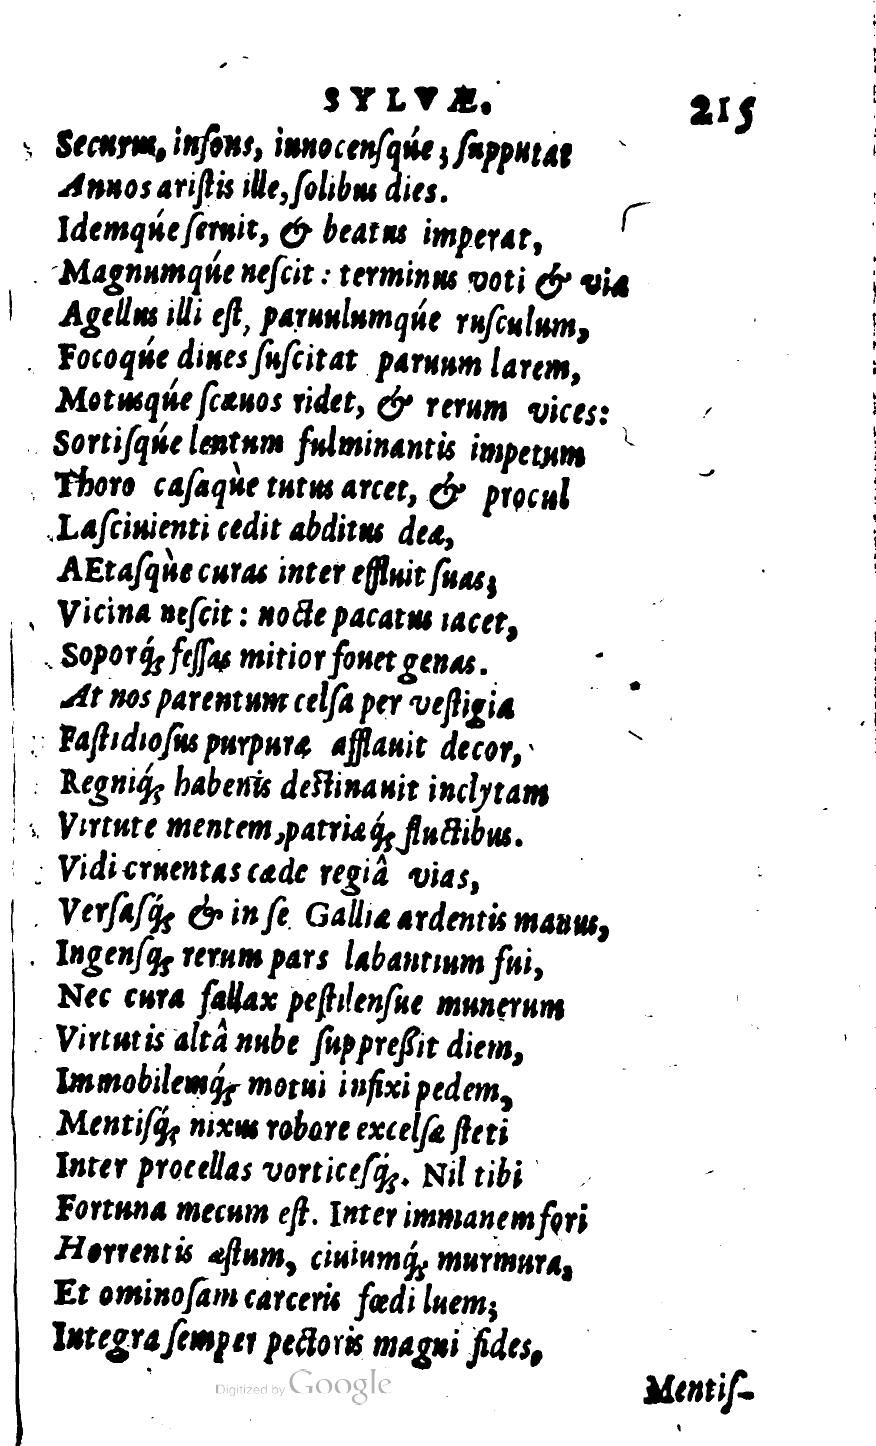 SYLVÆ. 215
Securus, insons, innocensqúe; supputat
Annos aristis ille, solibus dies.
Idemqúe seruit, & beatus imperat,
Magnumqúe nescit: terminus voti & viæ
Agellus illi est, paruulumqúe rusculum,
Focoqúe diues suscitat paruum larem,
Motusqúe scæuos ridet, & rerum vices:
Sortisqúe lentum fulminantis impetum
Thoro casaqùe tutus arcet, & procul
Lasciuienti cedit abditus deæ,
AEtasqùe curas inter effluit suas;
Vicina nescit: nocte pacatus iacet,
Soporq́; fessas mitior fouet genas.
At nos parentum celsa per vestigia
Fastidiosus purpuræ afflauit decor,
Regniq́; habenis destinauit inclytam
Virtute mentem, patriæq́; fluctibus.
Vidi cruentas cæde regiâ vias,
Versasq́; & in se Galliæ ardentis manus,
Ingensq; rerum pars labantium fui,
Nec cura fallax pestilensue munerum
Virtutis altâ nube suppreßit diem,
Immobilemq́; motui infixi pedem,
Mentisq́; nixus robore excelsæ steti
Inter procellas vorticesq́;. Nil tibi
Fortuna mecum est. Inter immanem fori
Horrentis æstum, ciuiumq́; murmura,
Et ominosam carceris fœdi luem;
Integra semper pectoris magni fides,
Mentis-
Digitized by Google